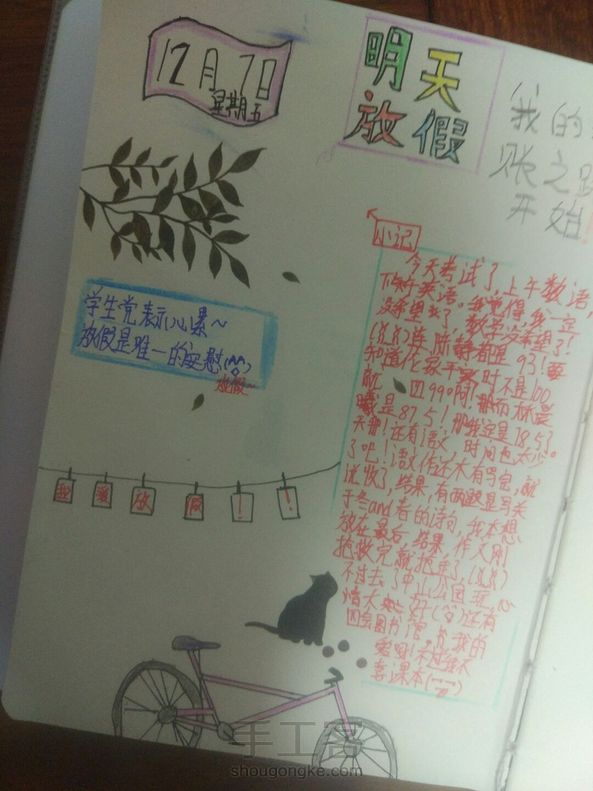 12月7日
星期五
明天
放假
我的
账之路
开始!
小记
今天考试了,上午数语,
下午英语。我觉得,我一定
没希望了,数学没希望了!
连陆静都是93!要
知道人家平时不是100
就
是87.5!
天哪!还有语文,时间也太少
了吧!语文作还木有写完,就
说收了,结果,有两题是写关
于冬and春的诗句,我本想
放在最后,结果,作文刚
抢救完就抢走了
不过去了中山公园玩,心
情大好
还有
回会图书馆
我的
爱呀!不过我不
喜课本
学生党表示心累~
放假是唯一的安慰(^^)
放假~
我要放假!!
手工客
shougongke.com